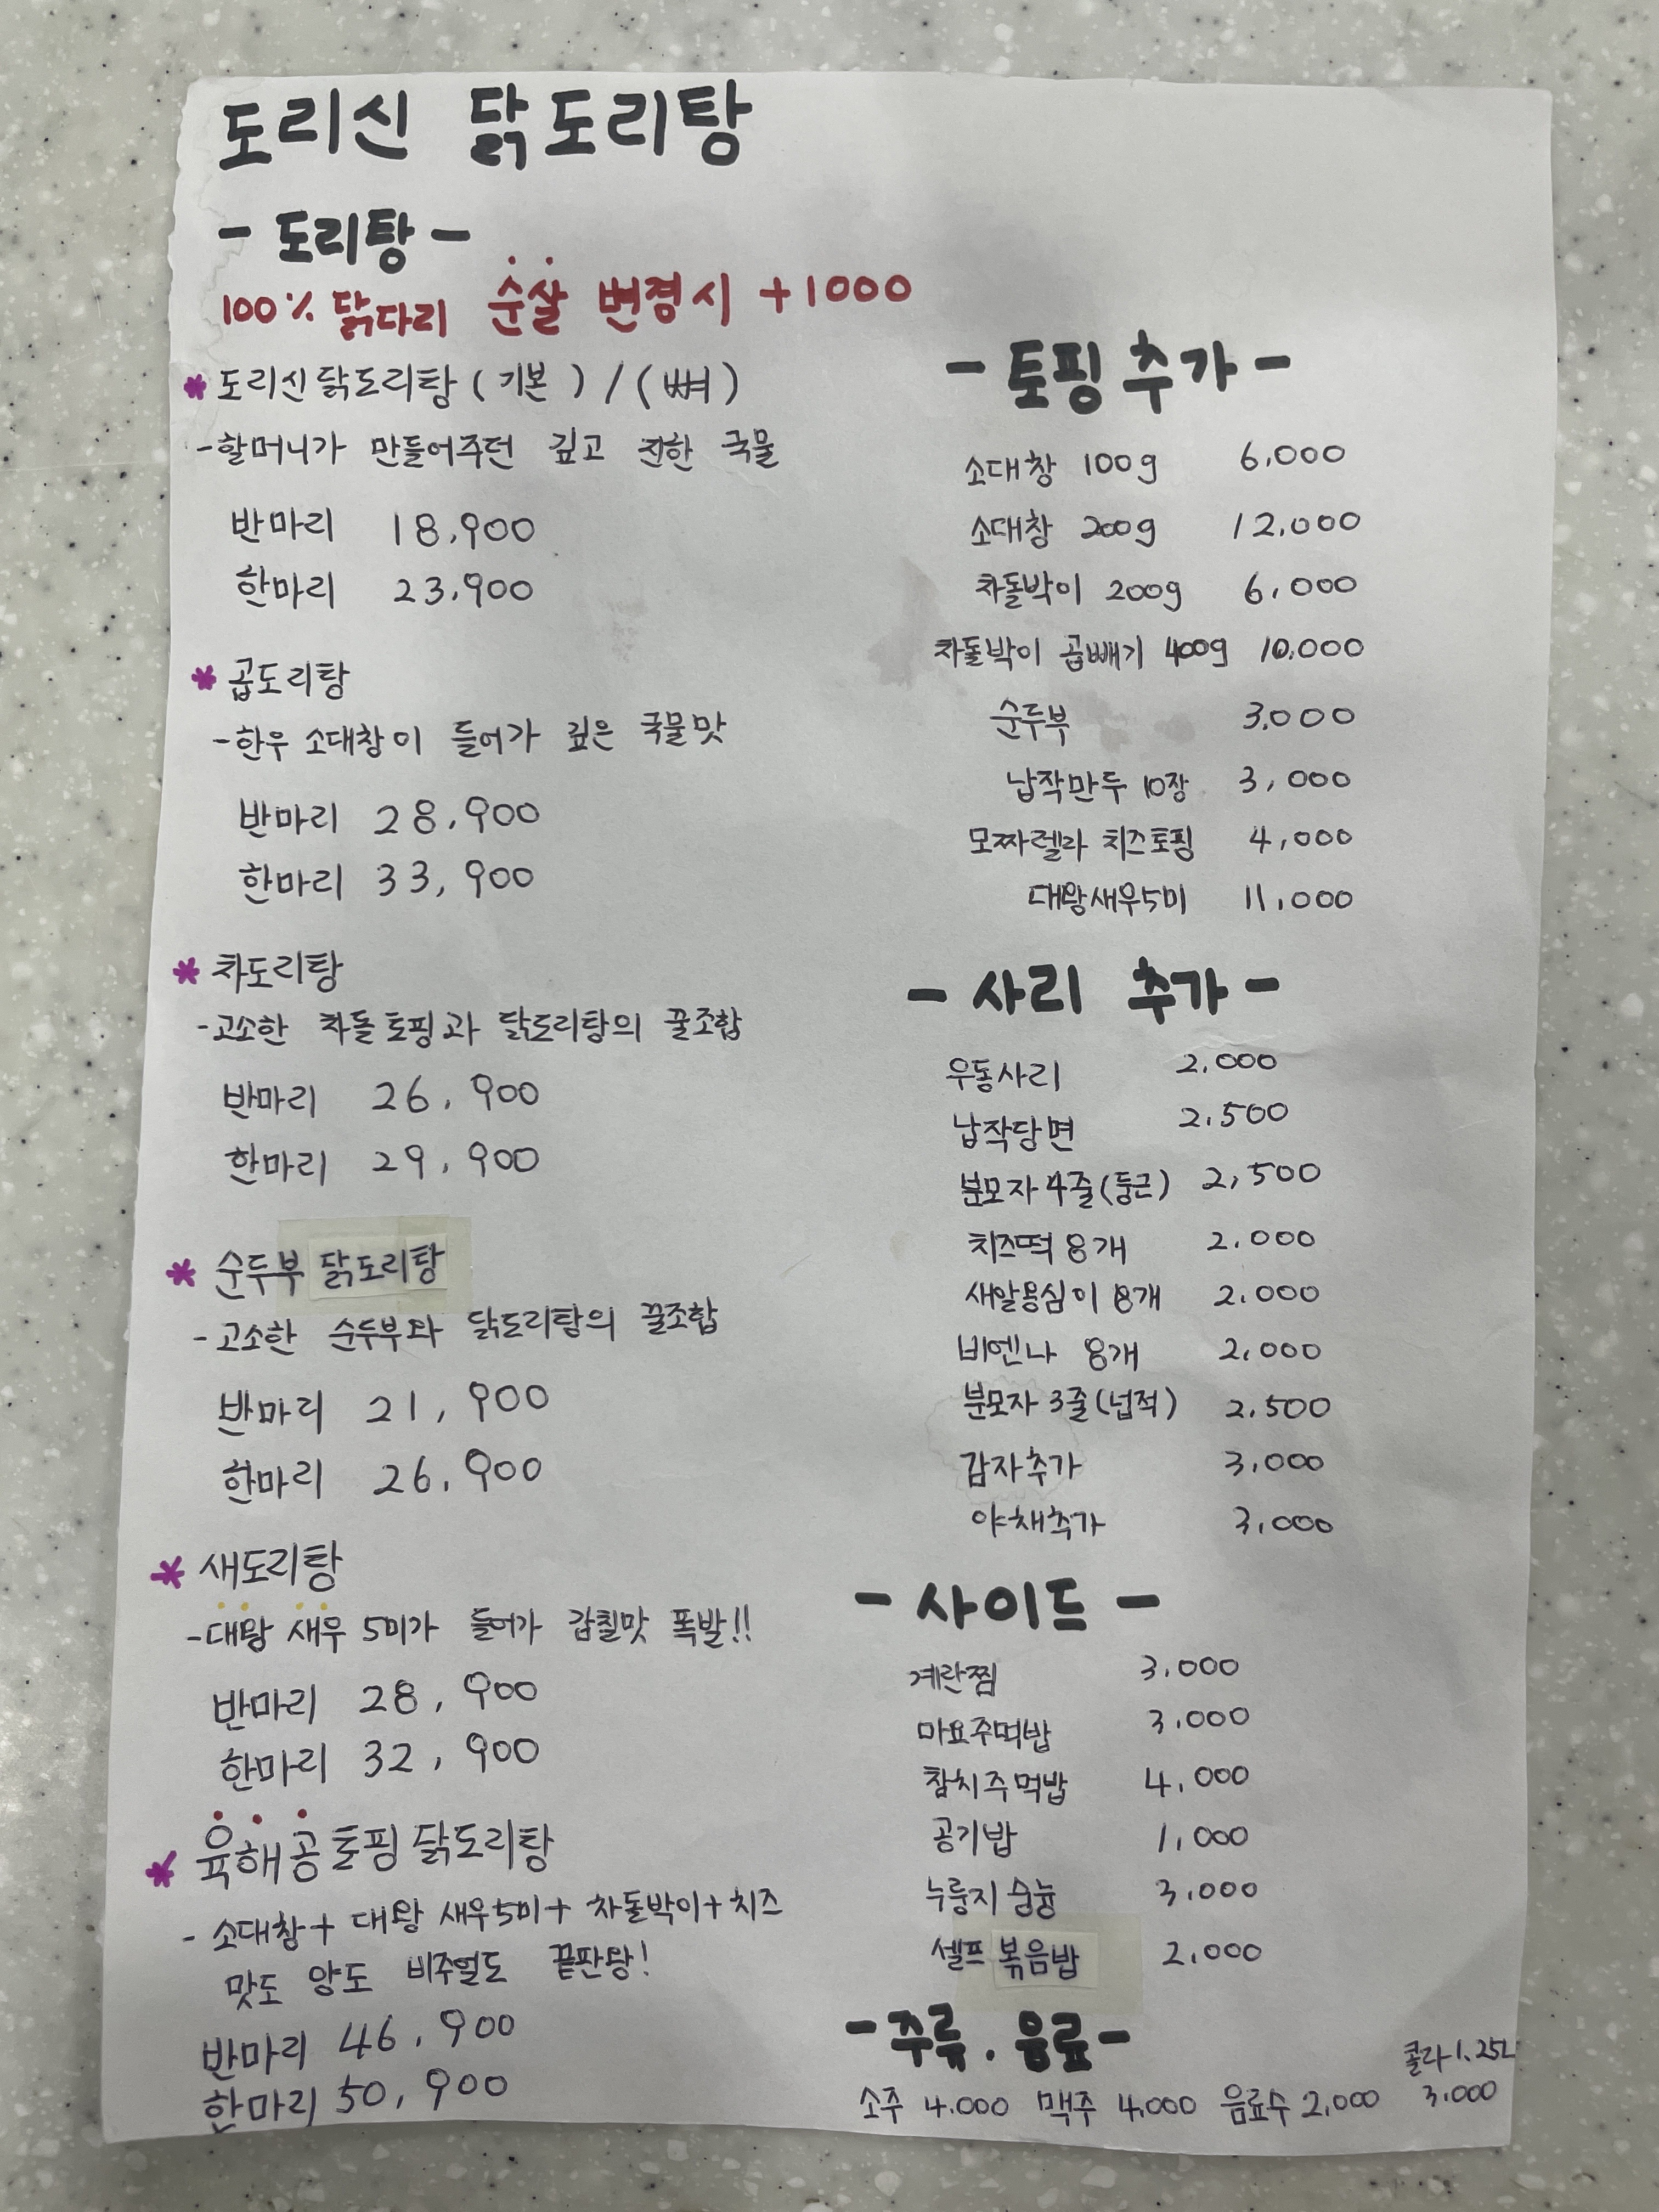 도리신 닭도리탕
- 도리탕 -
100% 닭다리 순살 변경시 +1000
* 도리신닭도리탕 (기본) / (뼈)
- 할머니가 만들어주던 깊고 진한 국물
반마리 18,900
한마리 23,900
* 곱도리탕
- 한우 소대창이 들어가 깊은 국물맛
반마리 28,900
한마리 33,900
* 차도리탕
- 고소한 차돌토핑과 닭도리탕의 꿀조합
반마리 26,900
한마리 29,900
* 순두부 닭도리탕
- 고소한 순두부와 닭도리탕의 꿀조합
반마리 21,900
한마리 26,900
* 새도리탕
- 대왕 새우 5미가 들어가 감칠맛 폭발!!
반마리 28,900
한마리 32,900
* 육해공 토핑 닭도리탕
- 소대창+ 대왕 새우5미+ 차돌박이+치즈
맛도 양도 비주얼도 끝판왕!
반마리 46,900
한마리 50,900
- 토핑 추가 -
소대창 100g 6,000
소대창 200g 12,000
차돌박이 200g 6,000
차돌박이 곱빼기 400g 10,000
순두부 3,000
납작만두 10장 3,000
모짜렐라 치즈토핑 4,000
대왕새우5미 11,000
- 사리 추가 -
우동사리 2,000
납작당면 2,500
분모자 4줄(둥근) 2,500
치즈떡 8개 2,000
새알옹심이 8개 2,000
비엔나 8개 2,000
분모자 3줄(넙적) 2,500
감자추가 3,000
야채추가 3,000
- 사이드 -
계란찜 3,000
마요주먹밥 3,000
참치주먹밥 4,000
공기밥 1,000
누룽지 숭늉 3,000
셀프 볶음밥 2,000
- 주류.음료 -
소주 4,000 맥주 4,000 음료수 2,000 콜라1.25L 3,000